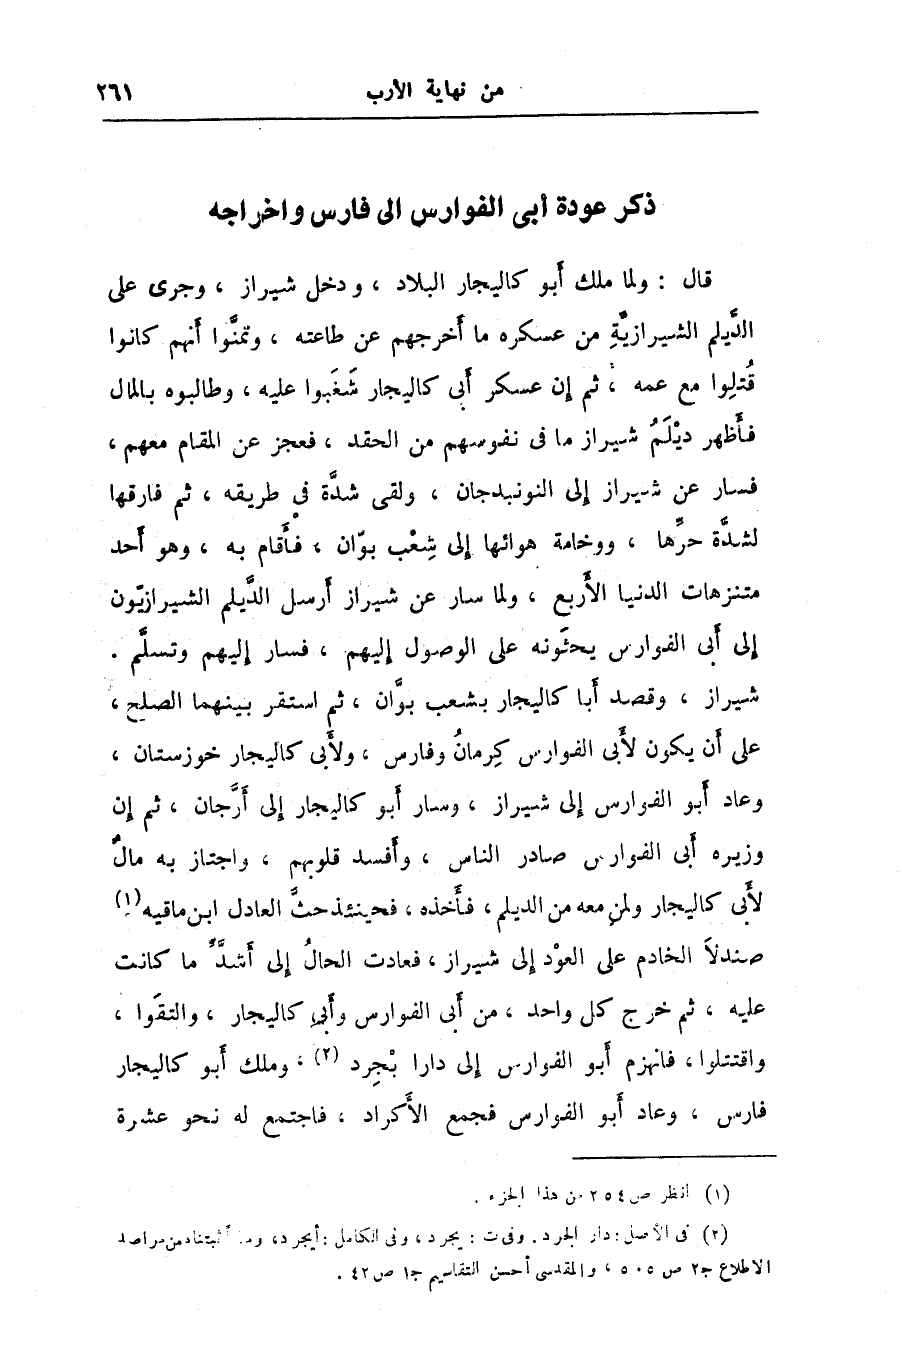 من نهاية الأرب ٢٦١
ذكر عودة أبى الفوارس الى فارس واخراجه
قال : ولما ملك أبو كاليجار البلاد ، ودخل شيراز ، وجرى على
الدَّيلم الشيرازيَّةِ من عسكره ما أخرجهم عن طاعته ، وتمنَّوا أنهم كانوا
قُتلِوا مع عمه ، ثم إن عسكر أبى كاليجار شَغَبوا عليه ، وطالبوه بالمال
فأظهر ديْلَمُ شيراز ما فى نفوسهم من الحقد ، فعجز عن المقام معهم ،
فسار عن شيراز إلى النونبدجان ، ولقى شدَّة فى طريقه ، ثم فارقها
لشدَّة حرِّها ، ووخامة هوائها إلى شِعْب بوّان ، فأقام به ، وهو أحد
متنزهات الدنيا الأربع ، ولما سار عن شيراز أرسل الدَّيلم الشيرازيّون
إلى أبى الفوارس يحثّونه على الوصول إليهم ، فسار إليهم وتسلَّم .
شيراز ، وقصد أبا كاليجار بشعب بوَّان ، ثم استقر بينهما الصلح ،
على أن يكون لأبى الفوارس كِرمانُ وفارس ، ولأبى كاليجار خوزستان ،
وعاد أبو الفوارس إلى شيراز ، وسار أبو كاليجار إلى أرَّجان ، ثم إن
وزيره أبى الفوارس صادر الناس ، وأفسد قلوبهم ، واجتاز به مالٌ
لأبى كاليجار ولمن معه من الديلم ، فأخذه ، فحينئذ حثَّ العادل ابن ماقيه (١)
صندلاً الخادم على العوْد إلى شيراز ، فعادت الحالُ إلى أشدَّ ما كانت
عليه ، ثم خرج كل واحد ، من أبى الفوارس وأبى كاليجار ، والتقَوا ،
واقتتلوا ، فانهزم أبو الفوارس إلى دارا بْجِرد (٢) ، وملك أبو كاليجار
فارس ، وعاد أبو الفوارس فجمع الأكراد ، فاجتمع له نحو عشرة
(١) انظر ص ٢٥٤ من هذا الجزء .
(٢) فى الأصل : دار الجرد . وفى ت : يجرد ، وفى الكامل : أيجرد ، وما أثبتناه من مراصد
الاطلاع ج٢ ص ٥٠٥ ، والمقدسى أحسن التقاسيم ج١ ص ٤٢ .